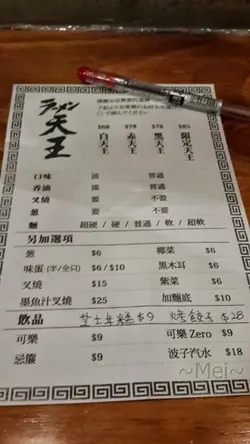 ラーメン
天王
$68 $78 $78 $83
白天王 赤天王 黑天王 限定天王
口味 淡 普通
香油 淡 普通
叉燒 要 不要
葱 要 不要
麵 超硬 / 硬 / 普通 / 軟 / 超軟
另加選項
葱 $6 椰菜 $6
味蛋 (半/全只) $6 / $10 黑木耳 $6
叉燒 $15 紫菜 $6
墨魚汁叉燒 $25 加麵底 $10
飲品 芝士年糕 $9 烤餃子 $28
可樂 $9 可樂 Zero $9
忌廉 $9 波子汽水 $18
~Mei~